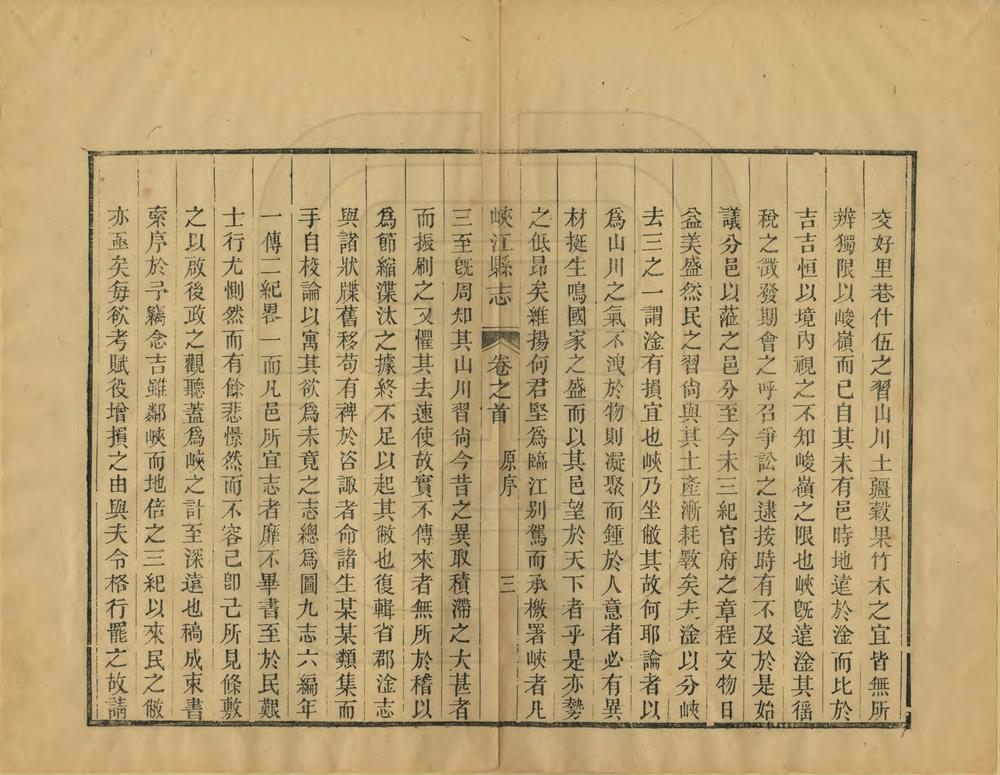 交好里巷什伍之習山川土疆穀果竹木之宜皆無所
辨獨限以峻嶺而已自其未有邑時地遠於淦而比於
吉吉恒以境內視之不知峻嶺之限也峽旣遠淦其徭
稅之徵發期會之呼召爭訟之逮按時有不及於是始
議分邑以蒞之邑分至今未三紀官府之章程文物日
益美盛然民之習尙與其土產漸耗斁矣夫淦以分峽
去三之一謂淦有損宜也峽乃坐敝其故何耶論者以
爲山川之氣不洩於物則凝聚而鍾於人意者必有異
材挺生鳴國家之盛而以其邑望於天下者乎是亦勢
之低昂矣維揚何君堅爲臨江别駕而承檄署峽者凡
峽江縣志 卷之首 原序 三
三至旣周知其山川習尙今昔之異取積滯之大甚者
而振刷之又懼其去速使故實不傳來者無所於稽以
爲節縮澡汰之據終不足以起其敝也復輯省郡淦志
與諸狀牒舊移苟有裨於咨諏者命諸生某某類集而
手自校論以寓其欲爲未竟之志總爲圖九志六編年
一傳二紀畧一而凡邑所宜志者靡不畢書至於民艱
士行尤惻然而有餘悲憬然而不容已卽己所見條敷
之以啟後政之觀聽蓋爲峽之計至深遠也稿成束書
索序於予竊念吉雖鄰峽而地倍之三紀以來民之敝
亦亟矣每欲考賦役增損之由與夫令格行罷之故請